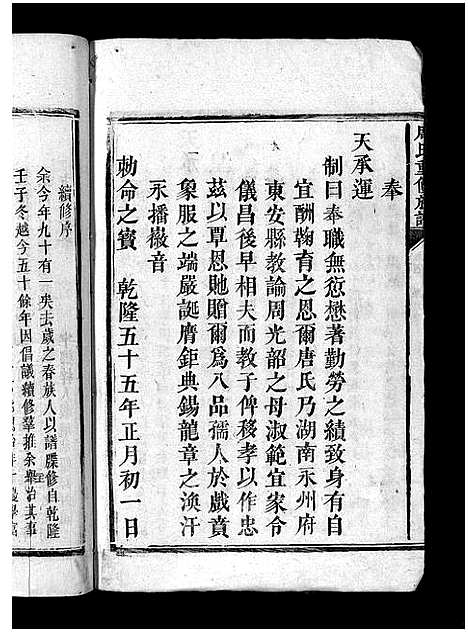 周氏重修族譜
奉
天承運
制曰奉職無愆懋著勤勞之績致身有自
宜酬鞠育之恩爾唐氏乃湖南永州府
東安縣教諭周光韶之母淑範宜家令
儀昌後早相夫而教子俾移孝以作忠
茲以覃恩貤贈爾爲八品孺人於戲賁
象服之端嚴誕膺鉅典錫龍章之渙汗
永播徽音
勅命之寶 乾隆五十五年正月初一日
續修序
余今年九十有一矣去歲之春族人以譜牒修自乾隆
壬子冬越今五十餘年因倡議續修羣推余舉治其事